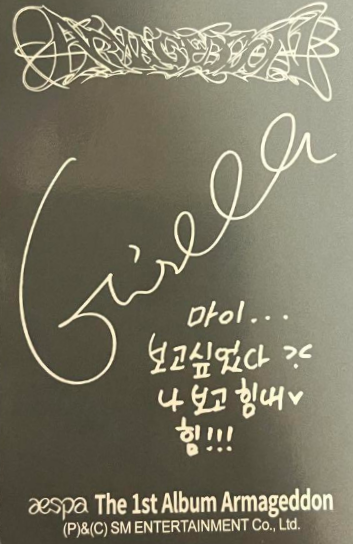 ARMAGEDDON
Giselle
마이...
보고싶었다 ><
나 보고 힘내♥
힘!!!
æspa The 1st Album Armageddon
(P)&(C) SM ENTERTAINMENT Co., Ltd.